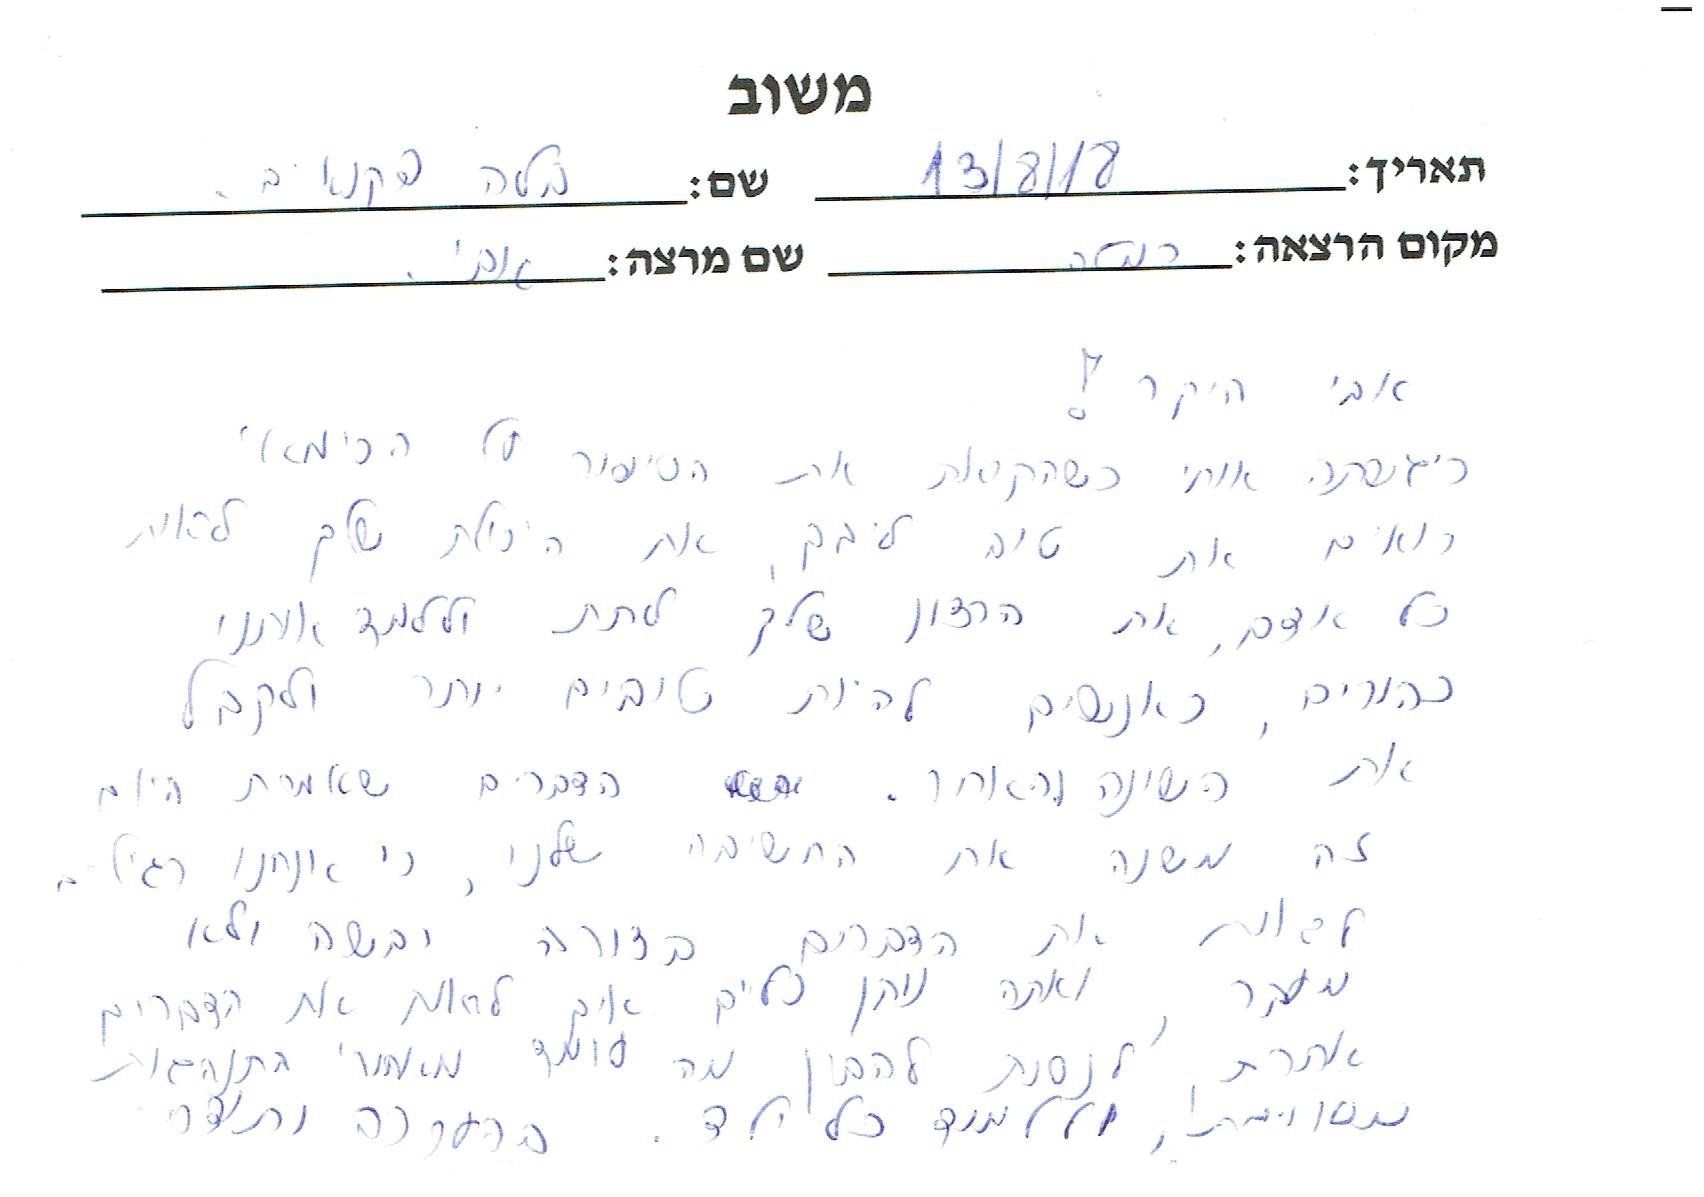 משוב
תאריך: 13/8/18 שם:
מקום הרצאה: רמלה שם מרצה: אבי.
אבי היקר!
ריגשתה אותי כשהקראת את הסיפור על הכימאי
רואים את טוב ליבך, את היכולת שלך לראות
כל אדם, את הרצון שלך לתת וללמד אותנו
כהורים, כאנשים להיות טובים יותר ולקבל
את השונה והאחר. הדברים שאמרת היום
זה משנה את החשיבה שלנו, כי אנחנו רגילים
לראות את הדברים בצורה יבשה ולא
מעבר, ואתה נותן כלים איך לראות את הדברים
אחרת, לנסות להבין מה עומד מאחורי התנהגות
מסויימת, וללמוד כל ילד. בהערכה ותודה